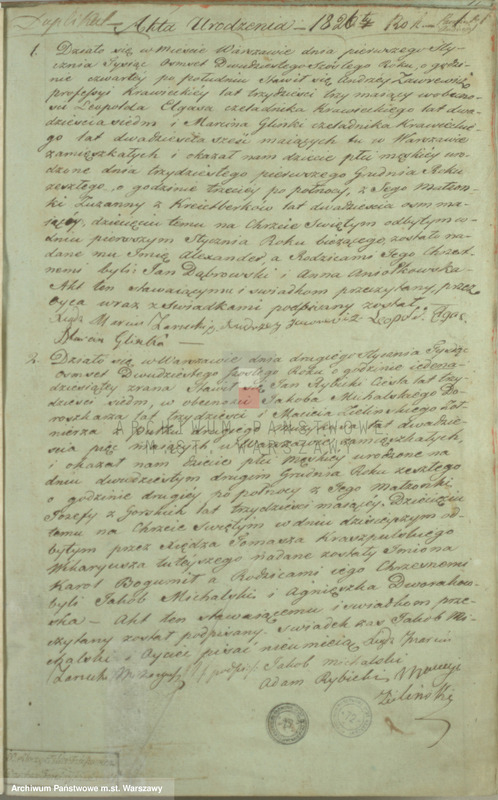 Duplikat Akta Urodzenia 1826 Rok
1. Działo się w Mieście Warszawie dnia pierwszego Sty-
cznia Tysiąc Osmset Dwudziestego Szóstego Roku, o godzi-
nie czwartey po południu Stawił się Andrzey
professyi Krawieckiey lat trzydzieści trzy maiący w obecno-
ści Leopolda Elgasa czeladnika Krawieckiego lat dwa-
dzieścia siedm i Marcina Glinki czeladnika Krawieckie-
go lat dwadzieścia sześć maiących tu w Warszawie
zamięszkałych i okazał nam dziecie płci męskiey uro-
dzone dnia trzydziestego pierwszego Grudnia Roku
zeszłego, o godzinie trzeciey po północy, z Jego Małżon-
ki Zuzanny z Kreitberków lat dwadzieścia osm ma-
iącey, dziecięciu temu na Chrzcie Świętym odbytym w
dniu pierwszym Stycznia Roku bieżącego, zostało na-
dane mu Imię Alexander, a Rodzicami Jego Chrzest-
nemi byli Jan Dąbrowski i Anna Aniołkowska
Akt ten stawaiącemu i świadkom przeczytany, przez
Oyca wraz z Świadkami podpisany został.
Marcin Glinka
2. Działo się w Warszawie dnia drugiego Stycznia Tysiąc
Osmset Dwudziestego Szóstego Roku, o godzinie iedena-
dziesiątey zrana Stawił się Jan Rybicki Cieśla lat trzy-
dzieści siedm, w obecności Jakoba Michalskiego Do-
roszkarza lat trzydzieści i Macieia Zielinskiego Żoł-
nierza z Pułku drugiego lat dwadzie-
ścia pięć maiących w Warszawie zamięszkałych,
i okazał nam dziecie płci męskiey urodzone na
dniu dwudziestym drugim Grudnia Roku zeszłego
o godzinie drugiey po północy z Jego Małżonki
Jozefy z Gorskich lat trzydzieści maiącey. Dziecięciu
temu na Chrzcie Świętym w dniu dzisieyszym od-
bytym przez Xiędza Tomasza
Wikaryusza tuteyszego nadane zostały Imiona
Karol Bogumił a Rodzicami iego Chrzesnemi
byli Jakób Michalski i Agnieszka Dworakow-
ska – Akt ten stawaiącemu i świadkom prze-
czytany został podpisany. świadek zaś Jakób Mi-
chalski i Oyciec pisać nieumieią
Jakob Michalski
Adam Rybicki Maciey
Zieliński
ARCHIWUM PAŃSTWOWE
M. ST. WARSZAWY
Archiwum Państwowe m.st. Warszawy